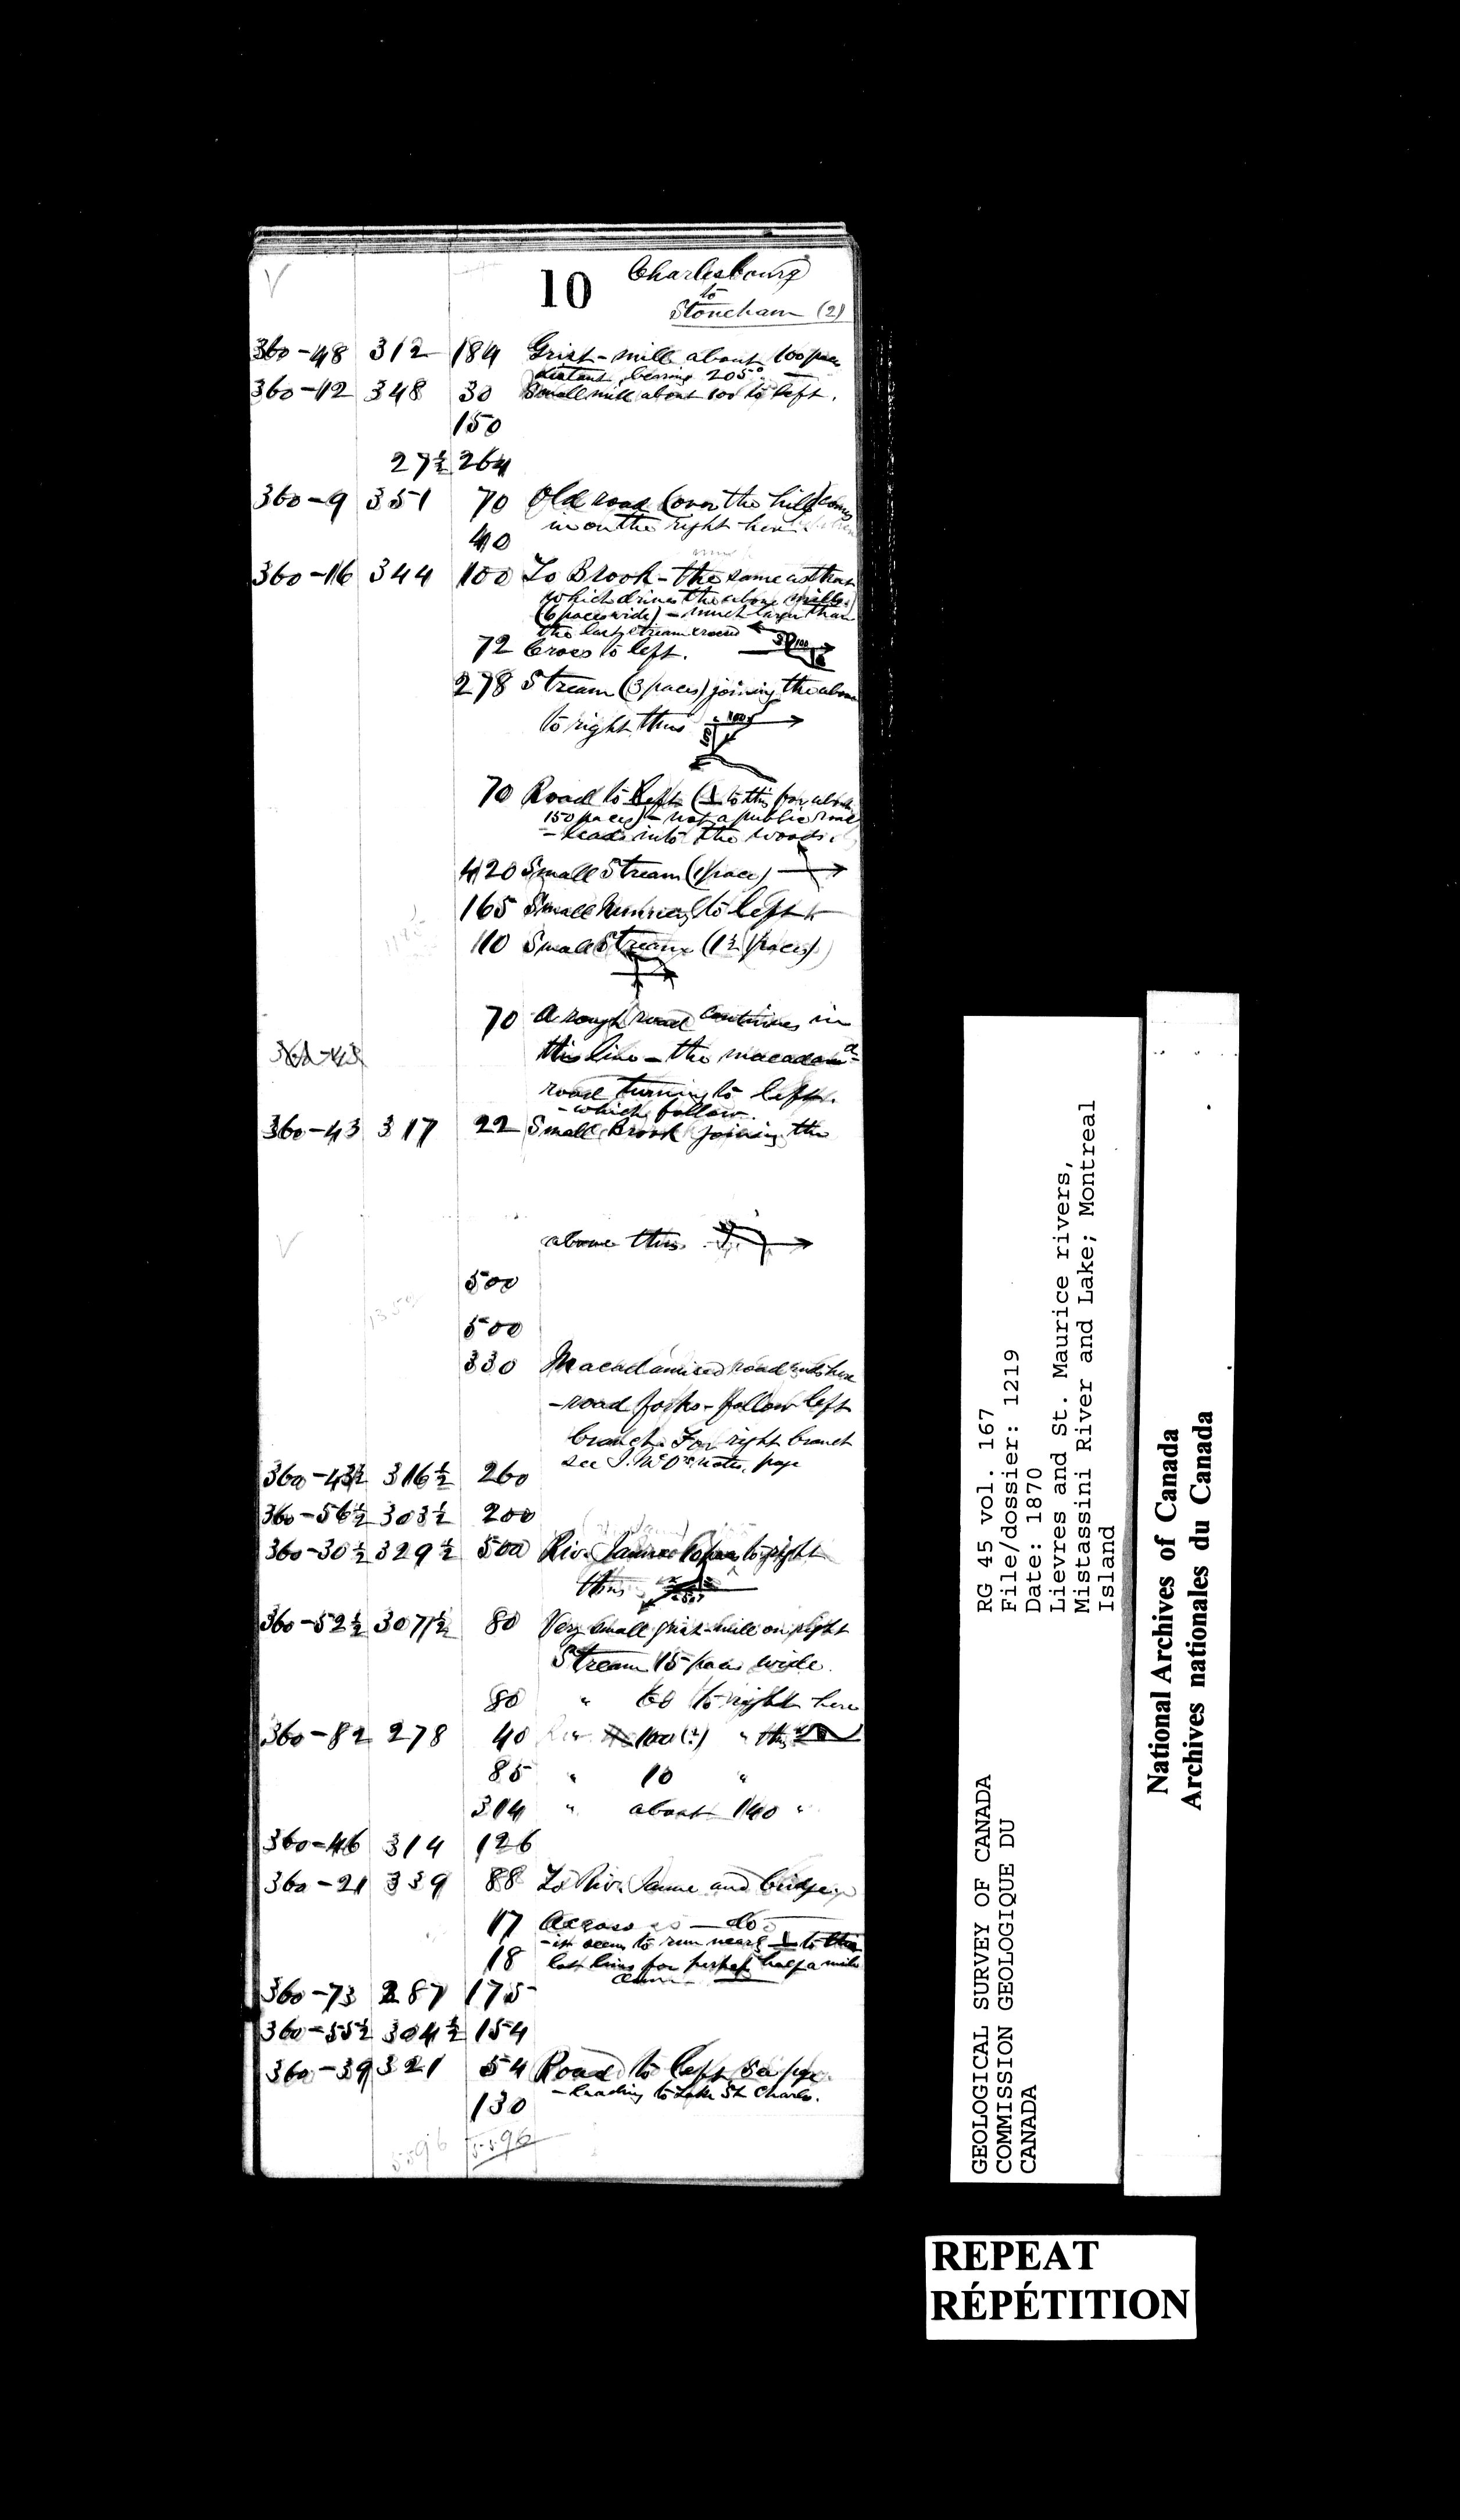 10 Charlesbourg
to
Stoneham (2)
360-48 312 184 Grist-mill about 100 paces
distant, bearing 205°.
360-12 348 30 Small mill about 100 to left.
150
27½ 264
360-9 351 70 Old road (over the hill) comes
in on the right here
40
360-16 344 100 To Brook - the same as that
which drives the above mills.
(6 paces wide) - much larger than
the last stream crossed
72 Cross to left.
278 Stream (3 paces) joining the above
to right thus 100 100
70 Road to left (⊥ to this for about
150 paces) - not a public road
- leads into the woods.
420 Small Stream (1 pace)
165 Small to left
110 Small Stream (1½ paces)
70 A rough road continues in
this line - the macadamd
road turning to left.
- which follow.
360-43 317 22 Small Brook joining the
above thus
1359
500
500
330 Macadamised road ends here
- road forks - follow left
branch. For right branch
see notes, page
360-43½ 316½ 260
360-56½ 303½ 200
360-30½ 329½ 500 Riv. Jaune to right
thus
360-52½ 307½ 80 Very small grist-mill on right
Stream 15 paces wide.
80 " 60 to right here
360-82 278 40 Riv 100 (?) " thus
85 " 10 "
314 " about 140 "
360-46 314 126
360-21 339 88 To Riv. Jaune and bridge
17 Across do
- it seems to run nearly ⊥ to this
18 last line for perhaps half a mile
360-73 287 175
360-55½ 304½ 154
360-39 321 54 Road to left See page
- leading to Lake St Charles.
130
5596 5596
GEOLOGICAL SURVEY OF CANADA
COMMISSION GEOLOGIQUE DU
CANADA
RG 45 vol. 167
File/dossier: 1219
Date: 1870
Lievres and St. Maurice rivers,
Mistassini River and Lake; Montreal
Island
National Archives of Canada
Archives nationales du Canada
REPEAT
RÉPÉTITION